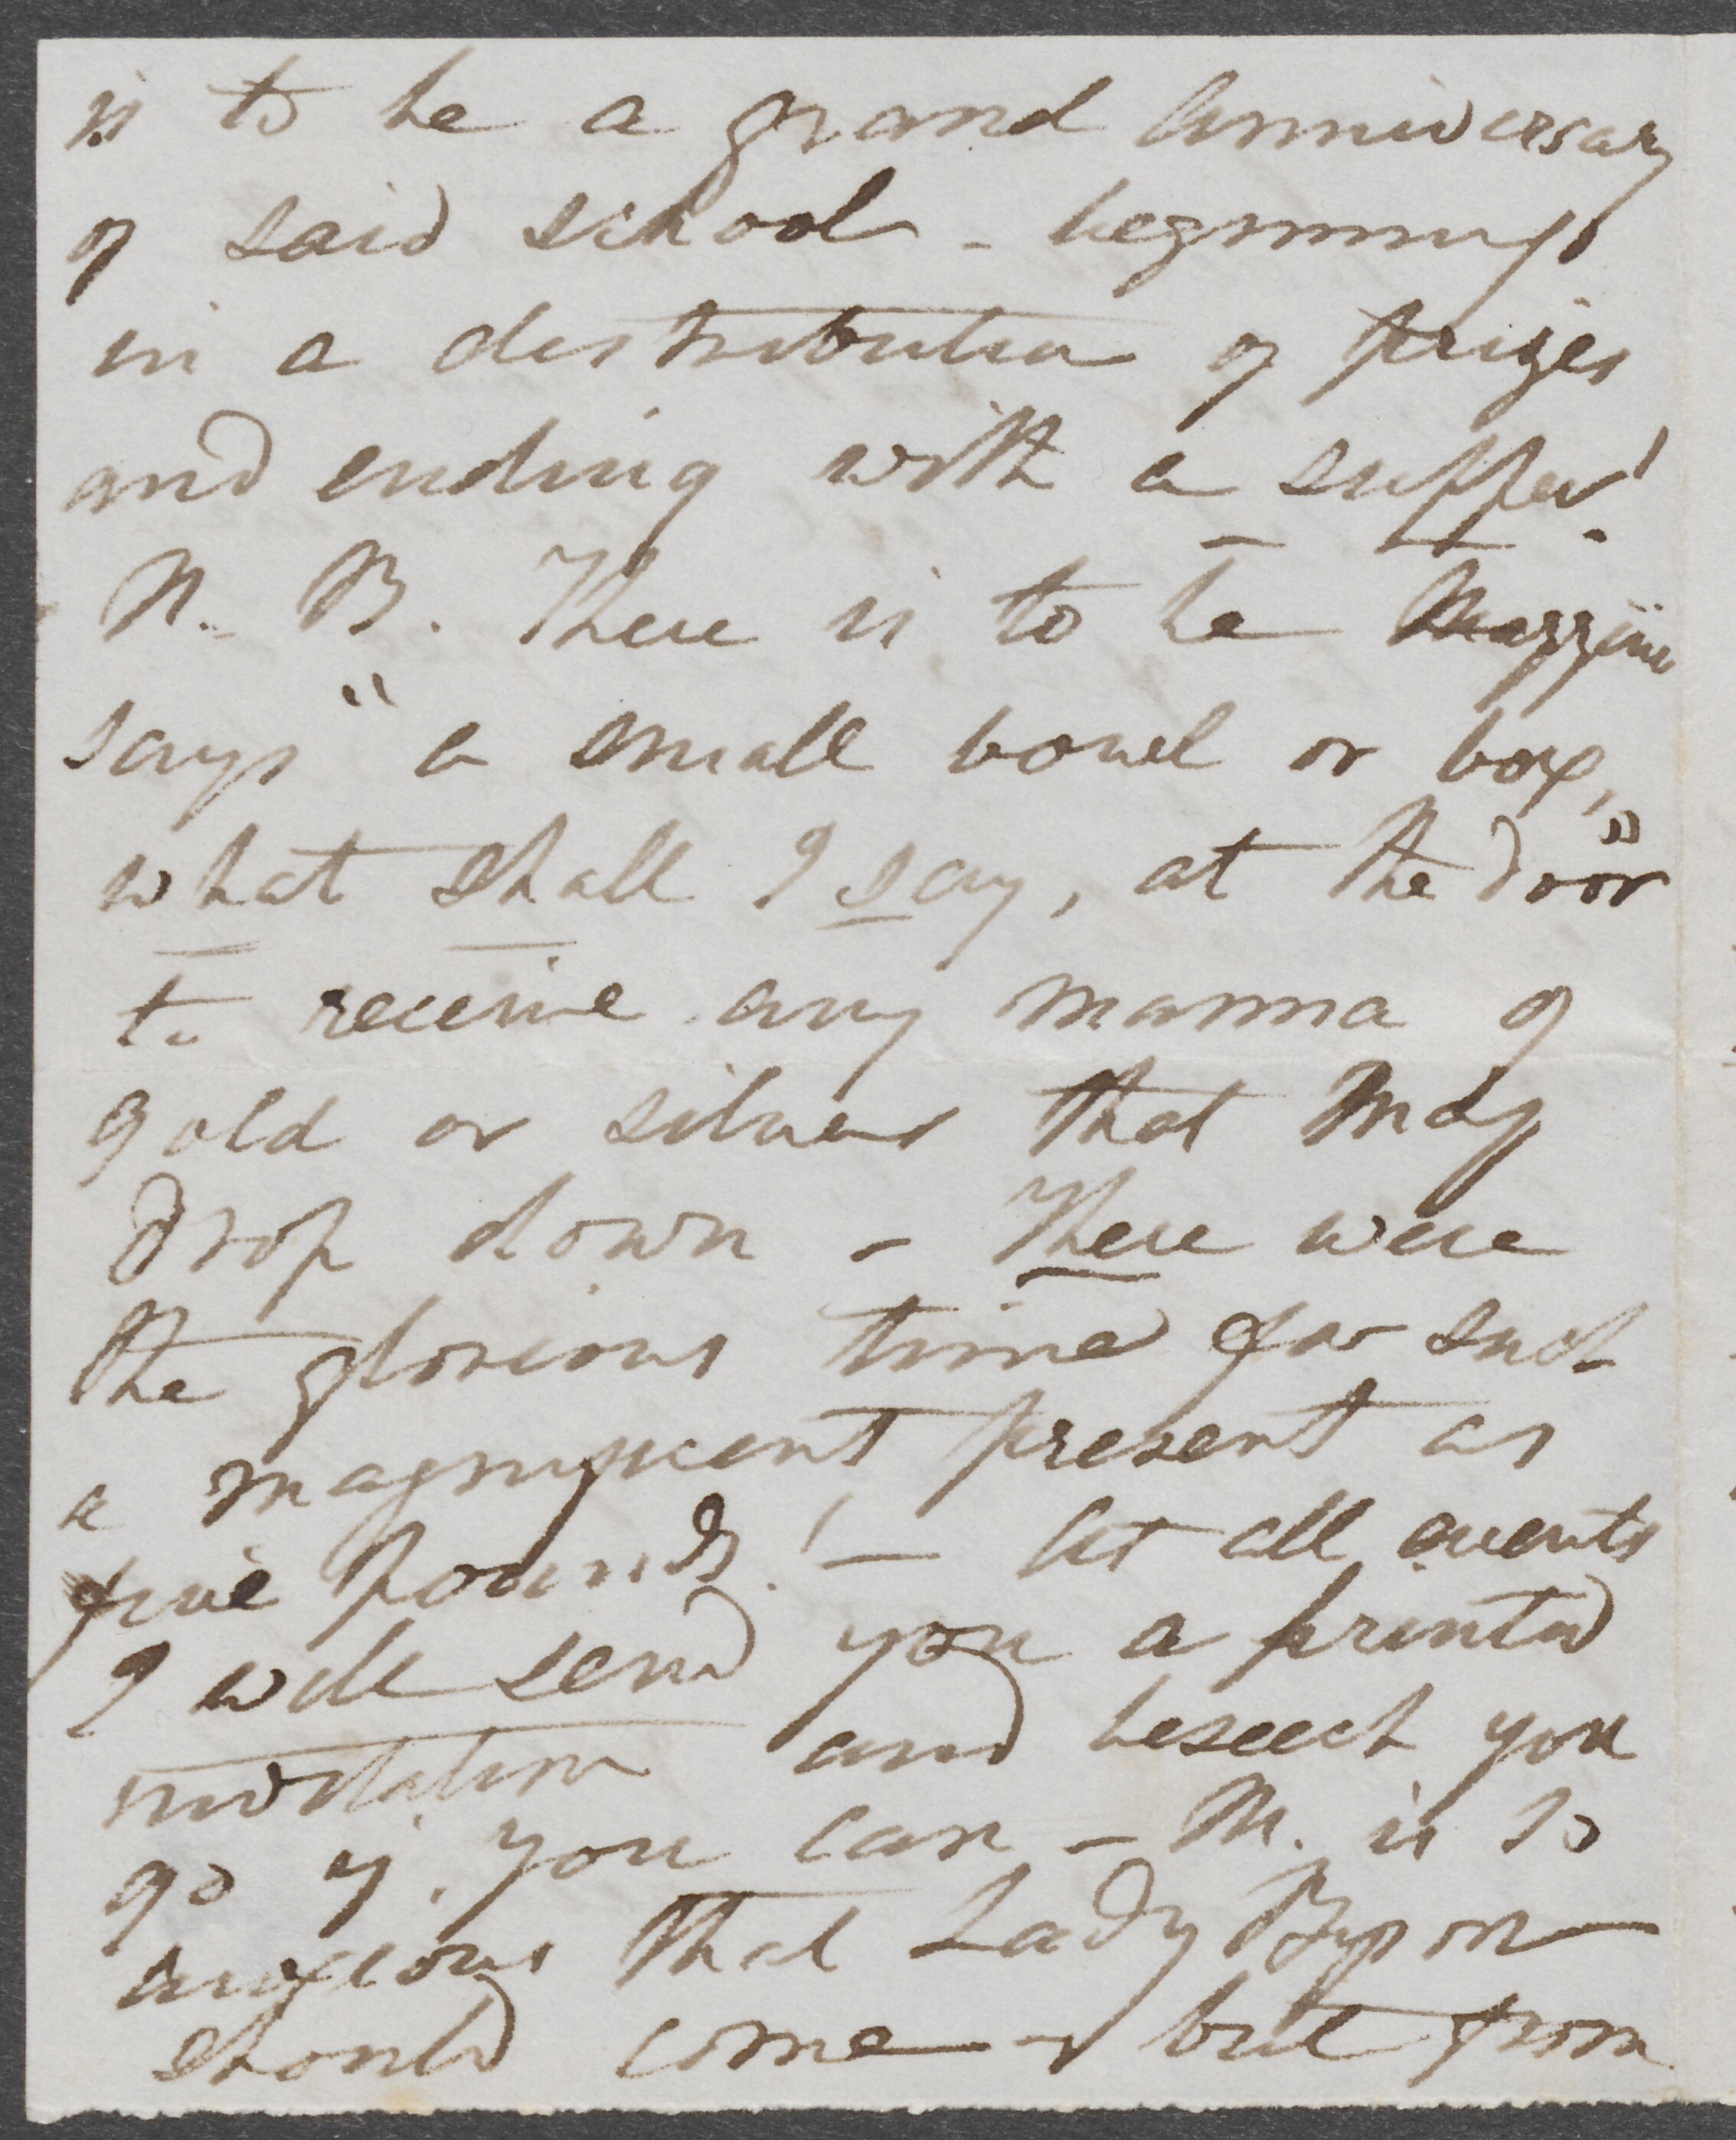 is to be a grand Anniversary
of said school - beginning
in a distribution of prizes
and ending with a supper!
N. B. There is to be Mazzini
says "a small bowl or box,
what shall I say, at the door"
to receive any manna of
gold or silver that may
drop down - There were
the glorious time for such
a magnificent present as
five pounds! - At all events
I will send you a printed
invitation and beseech you
go if you can - M. is so
anxious that Lady Byron
should come - but from